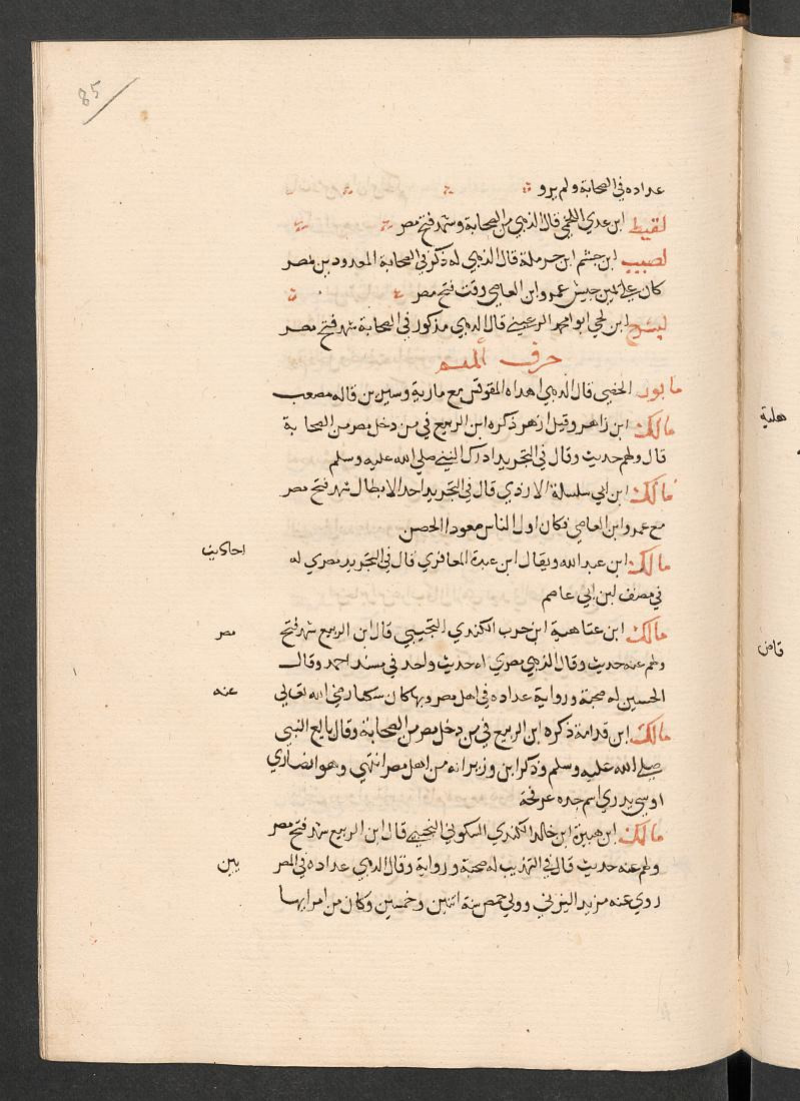 85
عداده في الصحابة ولم يرو
لقيط ابن عدي اللخمي قال الذهبي من الصحابة وشهد فتح مصر
لصيب ابن جشم ابن حرملة قال الذهبي له ذكر في الصحابة المعدودين مصر
كان علي يمين جيش عمرو ابن العاصي وقت فتح مصر
ليشرح ابن لحي ابو امحمد الرعيني قال الدهبي مذكور في الصحابة شهد فتح مصر
حرف الميم
مابور الخصي قال الدهبي اهداه المقوقس مع مارية وسيرين قاله مصعب
مالك ابن زاهر وقيل ازهر ذكره ابن الربيع في من دخل مصر من الصحابة
قال ولهم حديث وقال في التجريد ادرك النبي صلي الله عليه وسلم
مالك ابن ابي سلسلة الازدي قال في التجريد احد الابطال شهد فتح مصر
مع عمرو ابن العاصي فكان اول الناس صعودا الحصن
مالك ابن عبد الله ويقال ابن عبدة المعافري قال في التجريد مصري له
احاديث
في مصنف لبن ابي عاصم
مالك ابن عتاهية ابن حرب الكندي التجيبي قال ابن الربيع شهد فتح
مصر
ولهم عنه حديث وقال الذهبي مصري له حديث واحد في مسند احمد وقال
الحسين له صحبة ورواية عداده في اهل مصر وبها كان سكناه رضي الله تعالي
عنه
مالك ابن قدامة ذكره ابن الربيع في من دخل مصر من الصحابة وقال بايع النبي
صلي الله عليه وسلم وذكر ابن وزير انه من اهل مصر انتهي وهو انصاري
اوسي بدري اسم جده عرفجة
مالك ابن هبيرة ابن خالد الكندي السكوني التجيبي قال ابن الربيع شهد فتح مصر
ولهم عنه حديث قال في التهذيب له صحبة ورواية وقال الدهبي عداده في المصر
يين
روي عنه مزيد اليزني وولي حمص سنة اثنين وخمسين وكان من امرايها
هلية
قاض